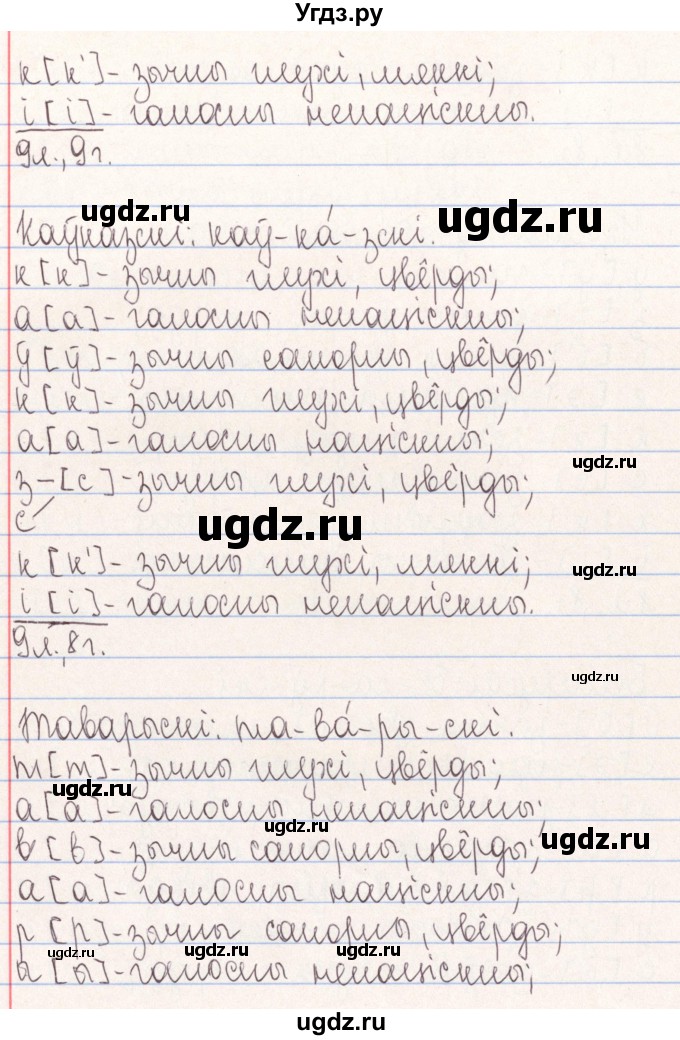 Угдз.ру
к [к'] - зычны глухі, мяккі;
і [і] - галосны ненаціскны.
9л., 9г.
ugdz.ru ugdz.ru
Каўказскі: каў-ка́-зскі.
к [к] - зычны глухі, цвёрды;
а [а] - галосны ненаціскны;
ў [ў] - зычны санорны, цвёрды;
к [к] - зычны глухі, цвёрды;
а [а] - галосны націскны;
ugdz.ru
з - [с] - зычны глухі, цвёрды;
с
ugdz.ru
к [к'] - зычны глухі, мяккі;
ugdz.ru
і [і] - галосны ненаціскны.
9л., 8г.
ugdz.ru
Таварыскі: та-ва́-ры-скі.
т [т] - зычны глухі, цвёрды;
ugdz.ru
а [а] - галосны ненаціскны;
ugdz.ru
в [в] - зычны санорны, цвёрды;
ugdz.ru
а [а] - галосны націскны;
р [р] - зычны санорны, цвёрды;
ugdz.ru ugdz.ru ugdz.ru
ы [ы] - галосны ненаціскны;
ugdz.ru